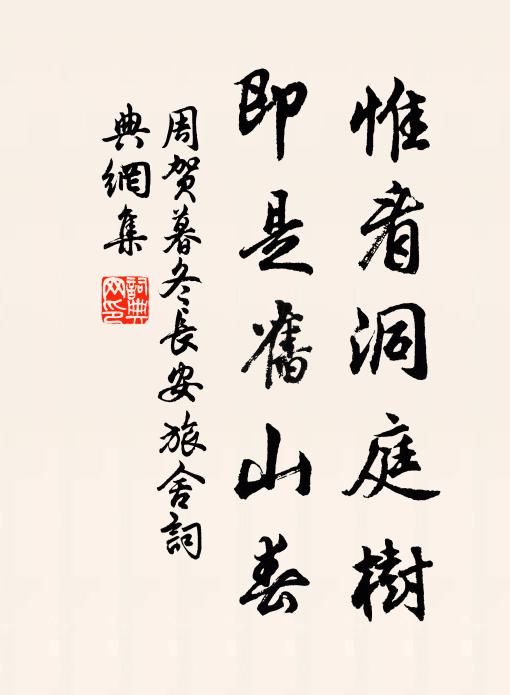 惟看洞庭樹
即是舊山春
周贺暮冬長安旅舍詞
典網集
詞典
网印